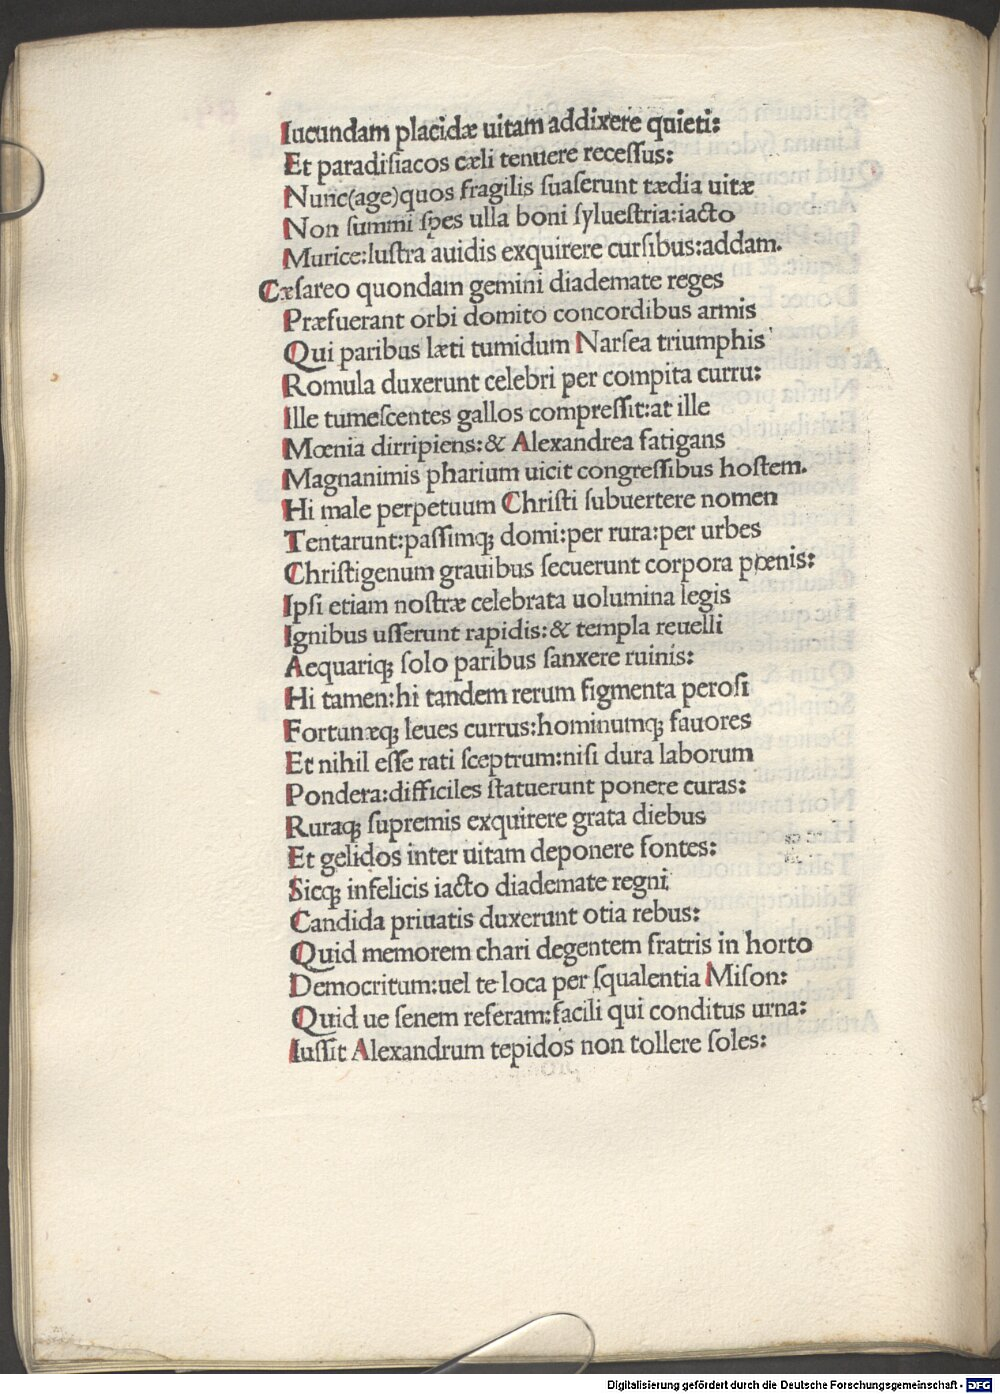 Iucundam placidæ uitam addixere quieti:
Et paradisiacos cæli tenuere recessus:
Nunc(age)quos fragilis suaserunt tædia uitæ
Non summi spes ulla boni syluestria:iacto
Murice:lustra auidis exquirere cursibus:addam.
Cæsareo quondam gemini diademate reges
Præfuerant orbi domito concordibus armis
Qui paribus læti tumidum Narsea triumphis
Romula duxerunt celebri per compita curru:
Ille tumescentes gallos compressit:at ille
Mœnia dirripiens:& Alexandrea fatigans
Magnanimis pharium uicit congressibus hostem.
Hi male perpetuum Christi subuertere nomen
Tentarunt:passimq; domi:per rura:per urbes
Christigenum grauibus secuerunt corpora pœnis:
Ipsi etiam nostræ celebrata uolumina legis
Ignibus usserunt rapidis:& templa reuelli
Aequariq; solo paribus sanxere ruinis:
Hi tamen:hi tandem rerum figmenta perosi
Fortunæq; leues currus:hominumq; fauores
Et nihil esse rati sceptrum:nisi dura laborum
Pondera:difficiles statuerunt ponere curas:
Ruraq; supremis exquirere grata diebus
Et gelidos inter uitam deponere fontes:
Sicq; infelicis iacto diademate regni
Candida priuatis duxerunt otia rebus:
Quid memorem chari degentem fratris in horto
Democritum:uel te loca per squalentia Mison:
Quid ue senem referam:facili qui conditus urna:
Iussit Alexandrum tepidos non tollere soles:
Digitalisierung gefördert durch die Deutsche Forschungsgemeinschaft - DFG